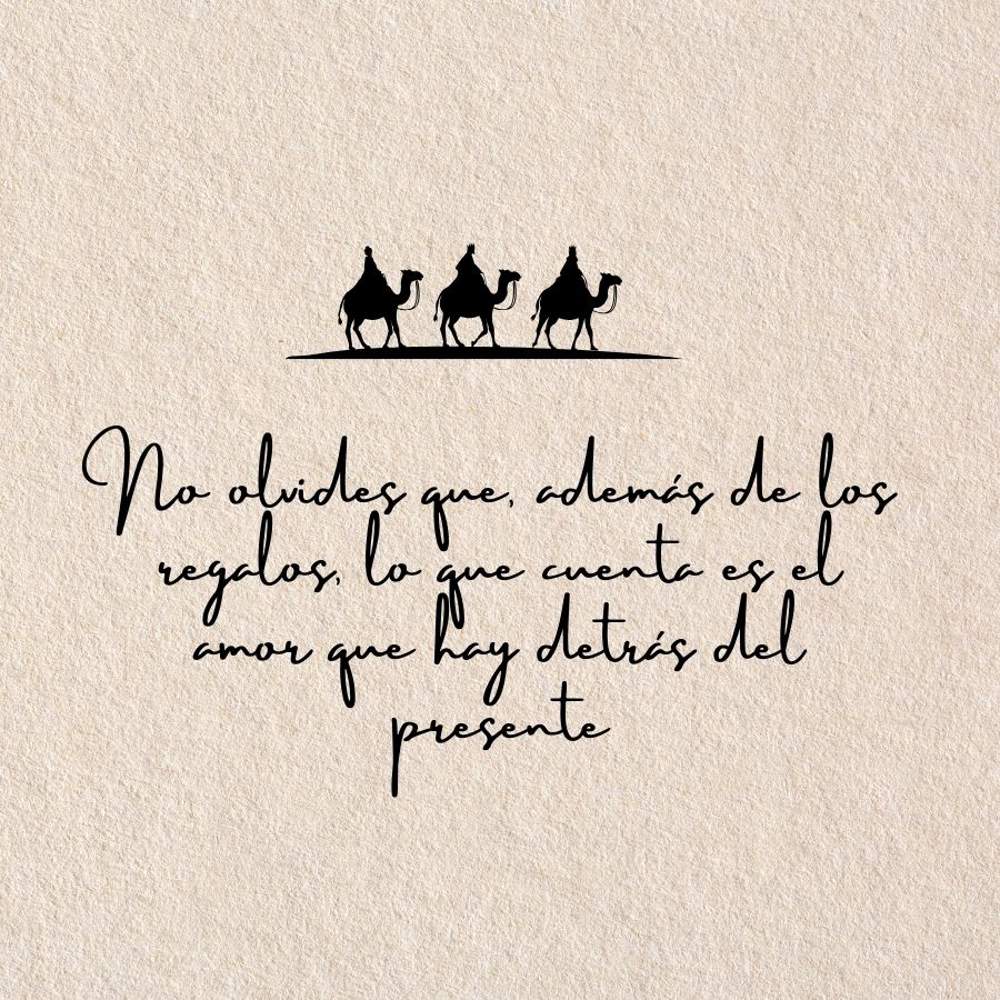 No olvides que, además de los
regalos, lo que cuenta es el
amor que hay detrás del
presente